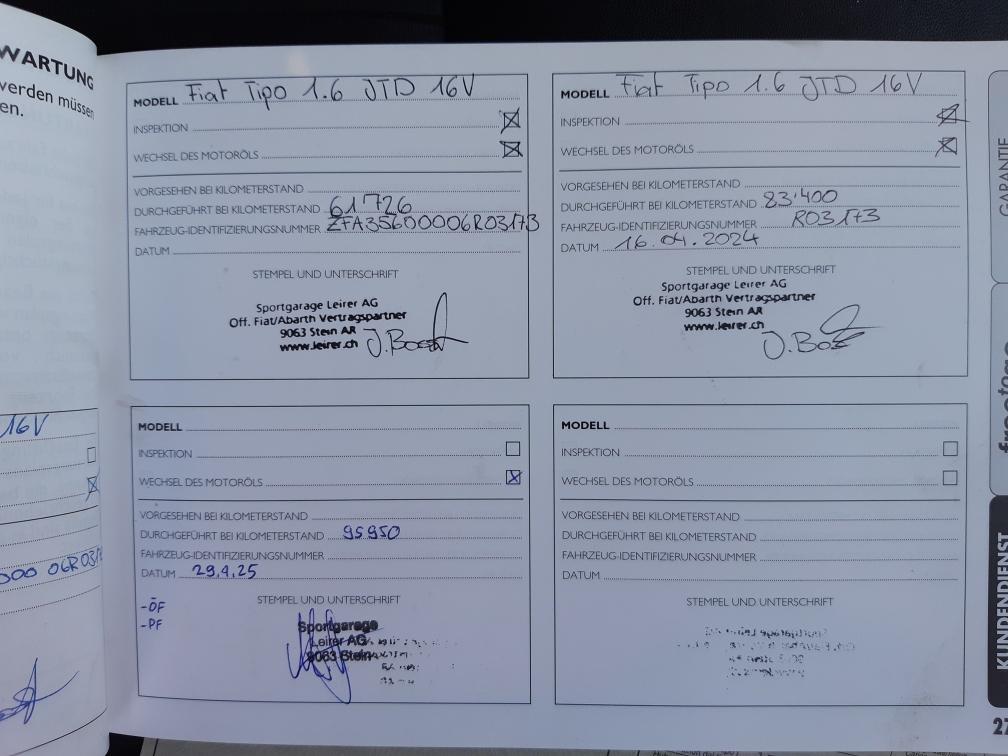 WARTUNG
werden müssen
en.
16V
000 06R031
MODELL Fiat Tipo 1.6 JTD 16V
INSPEKTION
WECHSEL DES MOTORÖLS
VORGESEHEN BEI KILOMETERSTAND
DURCHGEFÜHRT BEI KILOMETERSTAND 61726
FAHRZEUG-IDENTIFIZIERUNGSNUMMER ZFA35600006R03173
DATUM
STEMPEL UND UNTERSCHRIFT
Sportgarage Leirer AG
Off. Fiat/Abarth Vertragspartner
9063 Stein AR
www.leirer.ch
MODELL Fiat Tipo 1.6 JTD 16V
INSPEKTION
WECHSEL DES MOTORÖLS
VORGESEHEN BEI KILOMETERSTAND
DURCHGEFÜHRT BEI KILOMETERSTAND 83'400
FAHRZEUG-IDENTIFIZIERUNGSNUMMER R03173
DATUM 16.04.2024
STEMPEL UND UNTERSCHRIFT
Sportgarage Leirer AG
Off. Fiat/Abarth Vertragspartner
9063 Stein AR
www.leirer.ch
MODELL
INSPEKTION
WECHSEL DES MOTORÖLS
VORGESEHEN BEI KILOMETERSTAND
DURCHGEFÜHRT BEI KILOMETERSTAND 95950
FAHRZEUG-IDENTIFIZIERUNGSNUMMER
DATUM 29.4.25
STEMPEL UND UNTERSCHRIFT
-ÖF
-PF
Sportgarage
Leirer AG
9063 Stein
MODELL
INSPEKTION
WECHSEL DES MOTORÖLS
VORGESEHEN BEI KILOMETERSTAND
DURCHGEFÜHRT BEI KILOMETERSTAND
FAHRZEUG-IDENTIFIZIERUNGSNUMMER
DATUM
STEMPEL UND UNTERSCHRIFT
GARANTIE
KUNDENDIENST
27